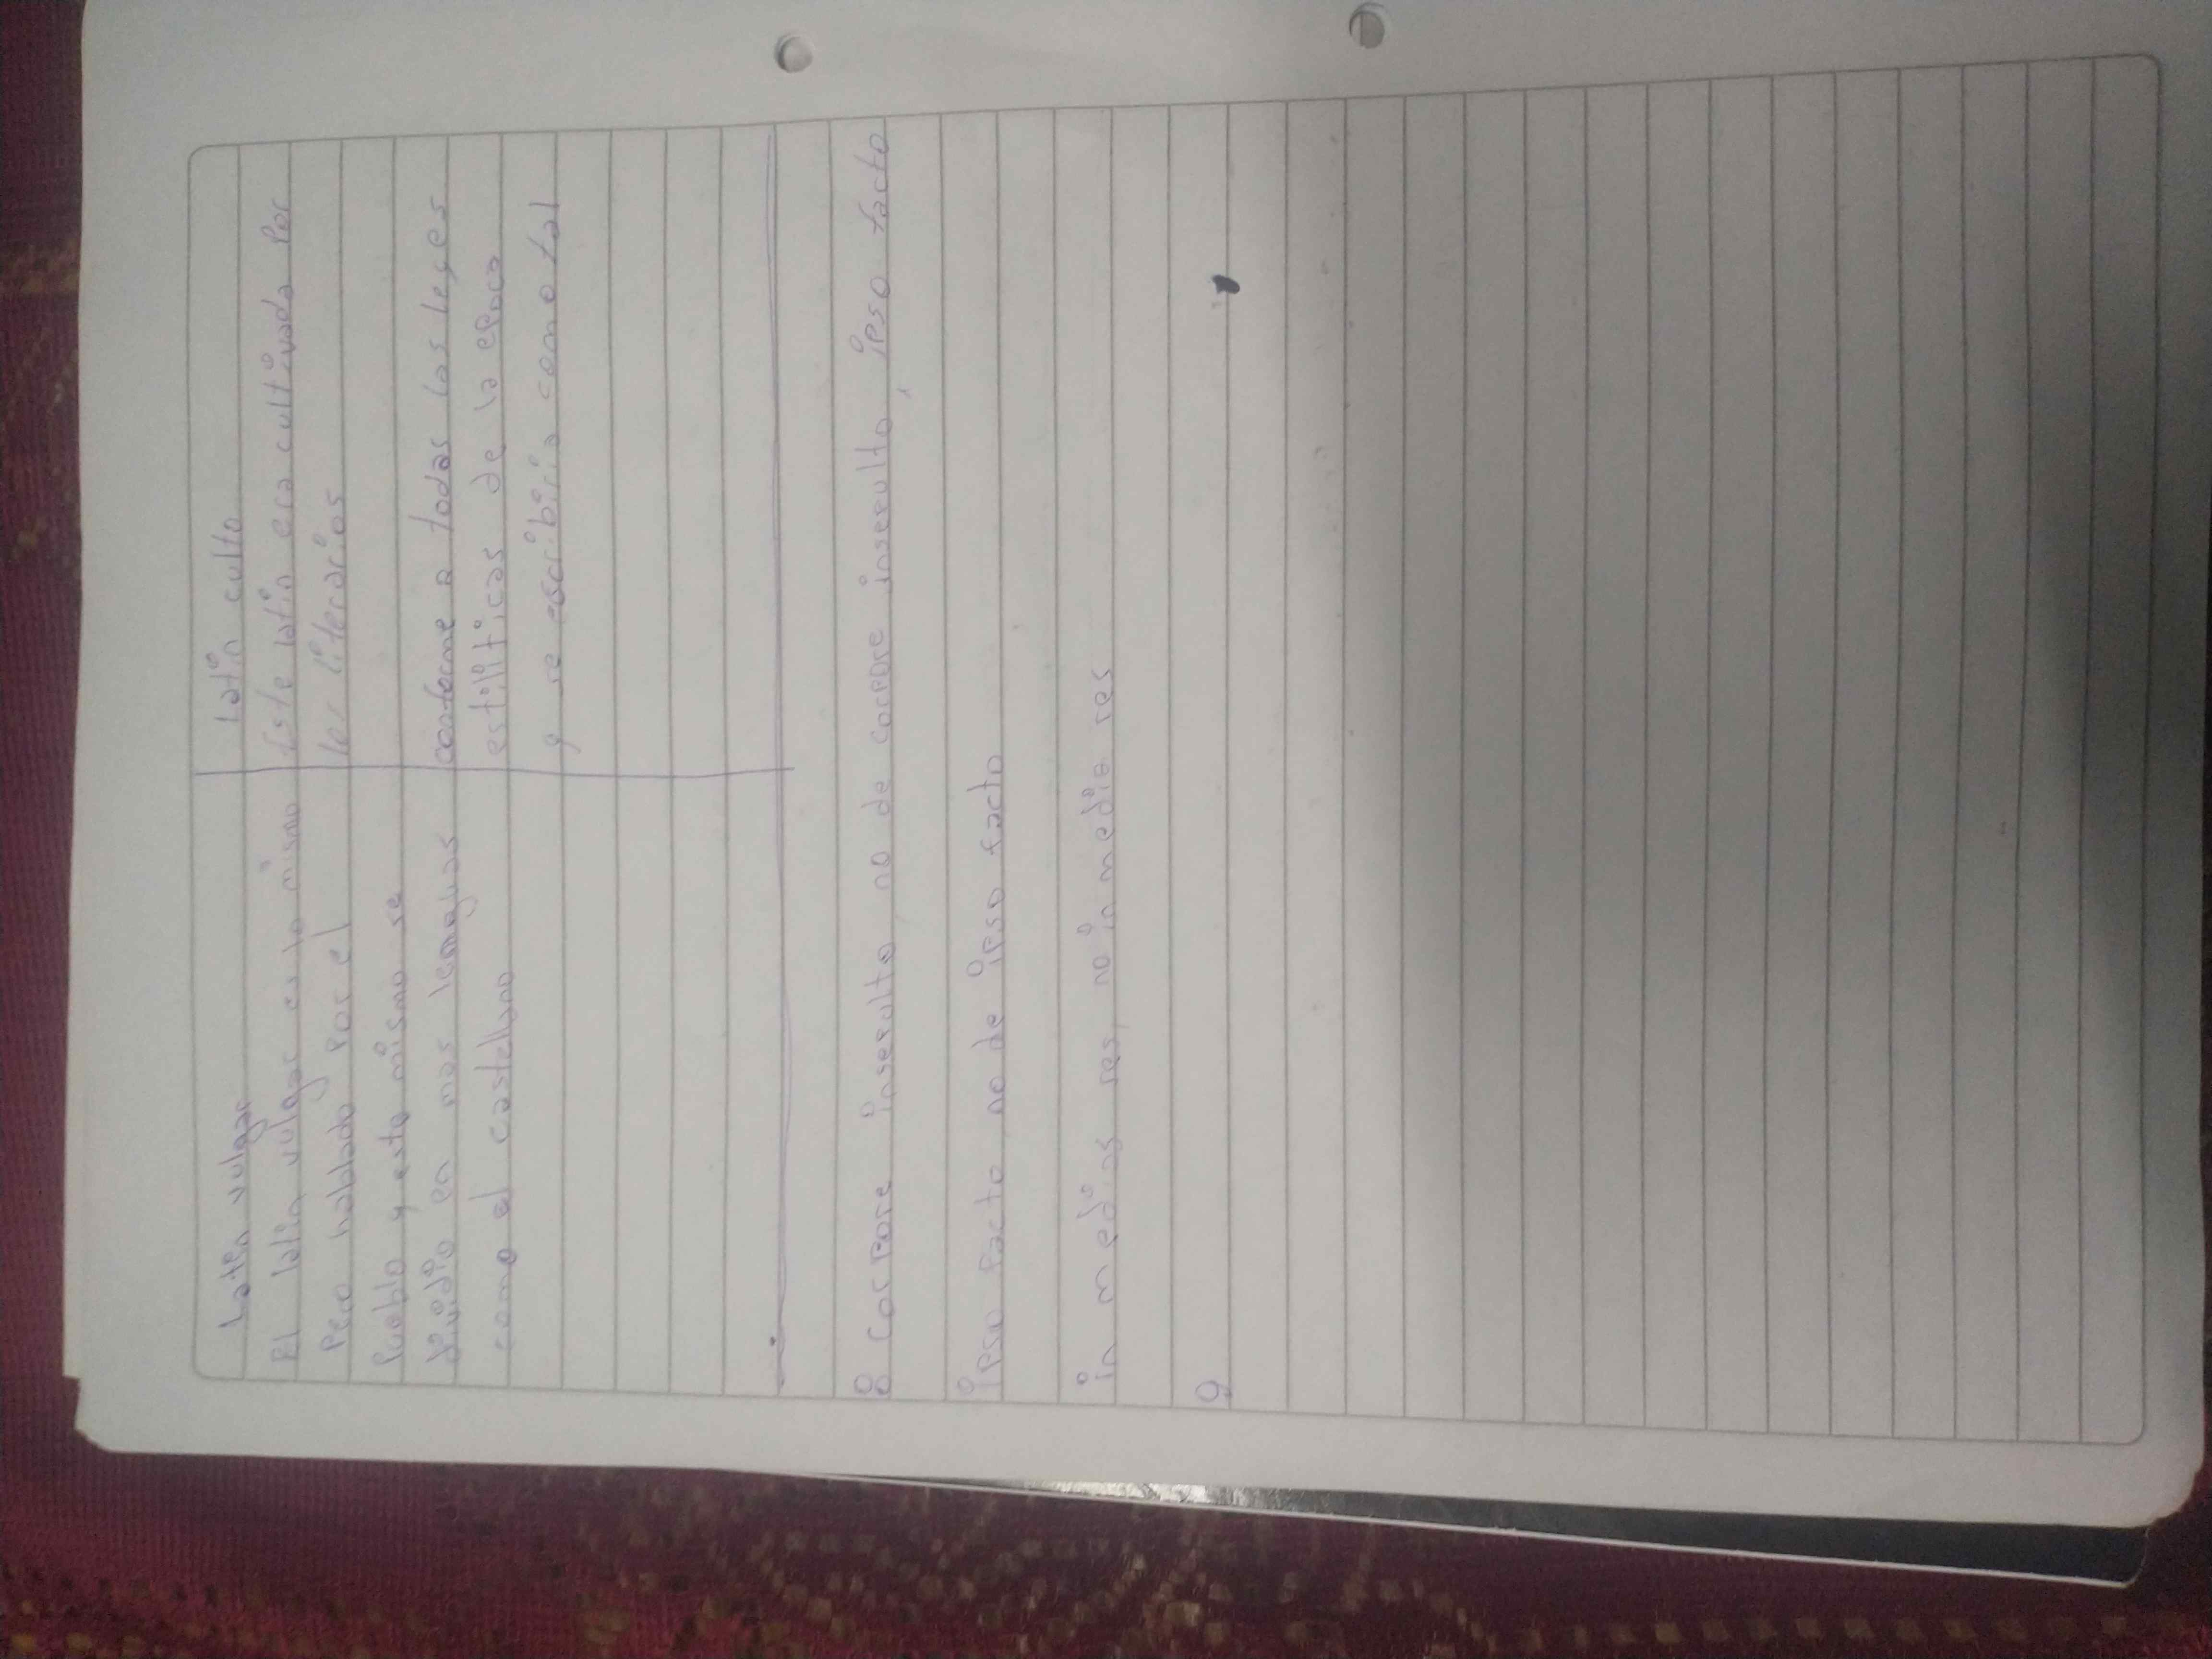 Latin vulgar
El latin vulgar es lo mismo
Pero hablado por el
Pueblo y este mismo se
dividio en mas lenaguas
como el castellano
latin culto
Este latin era cultivada por
los literarios
conforme a todas las leyes
estiliticas de la epoca
y se escribiria como tal
8 corpore insepulto, no de corpore insepulto, ipso facto
ipso facto, no de ipso facto
in medias res, no in media res
9